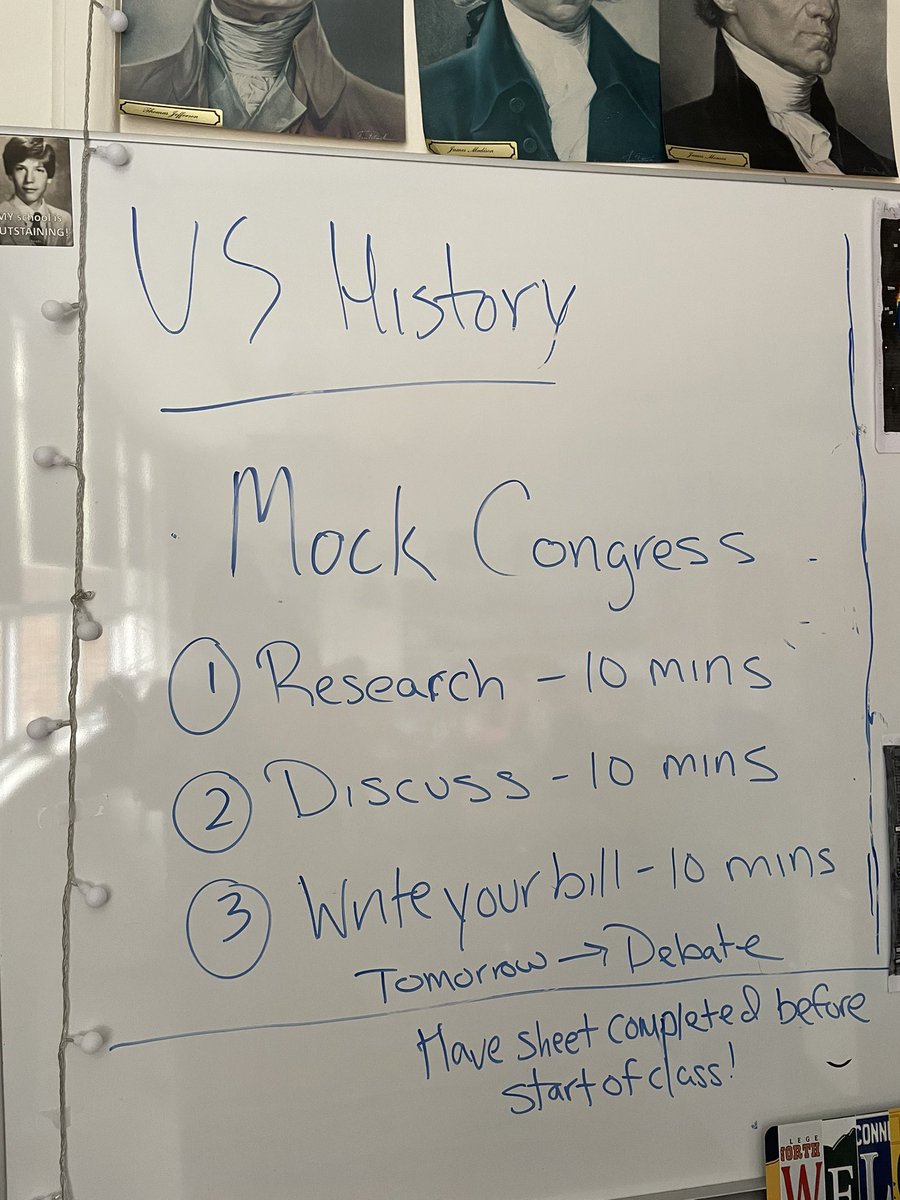 Thomas Jefferson
James Madison
James Monroe
MY school is
UTSTAINING!
US History
Mock Congress
1 Research - 10 mins
2 Discuss - 10 mins
3 Write your bill - 10 mins
Tomorrow → Debate
Have sheet completed before
start of class!
LEGE
NORTH
CONN
W E L